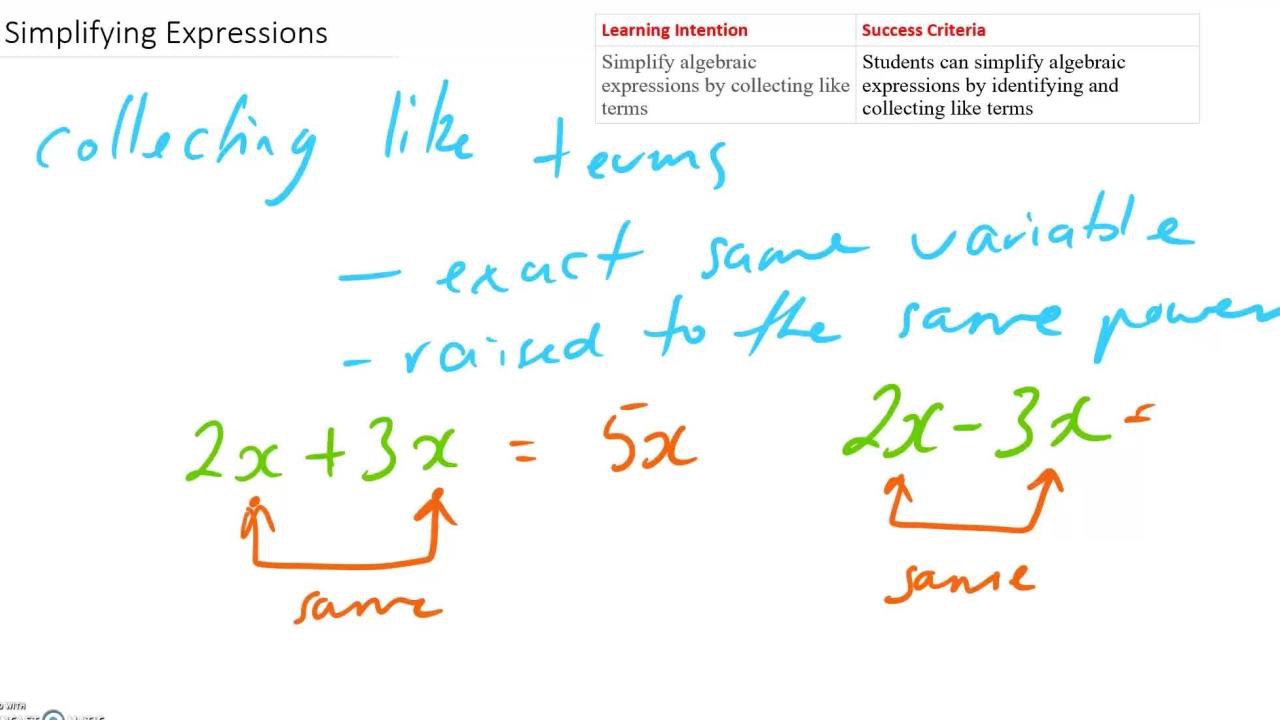 Simplifying Expressions
Learning Intention
Success Criteria
Simplify algebraic
expressions by collecting like
terms
Students can simplify algebraic
expressions by identifying and
collecting like terms
collecting like terms
— exact same variable
- raised to the same power
2x + 3x = 5x
same
2x - 3x =
same
WITH